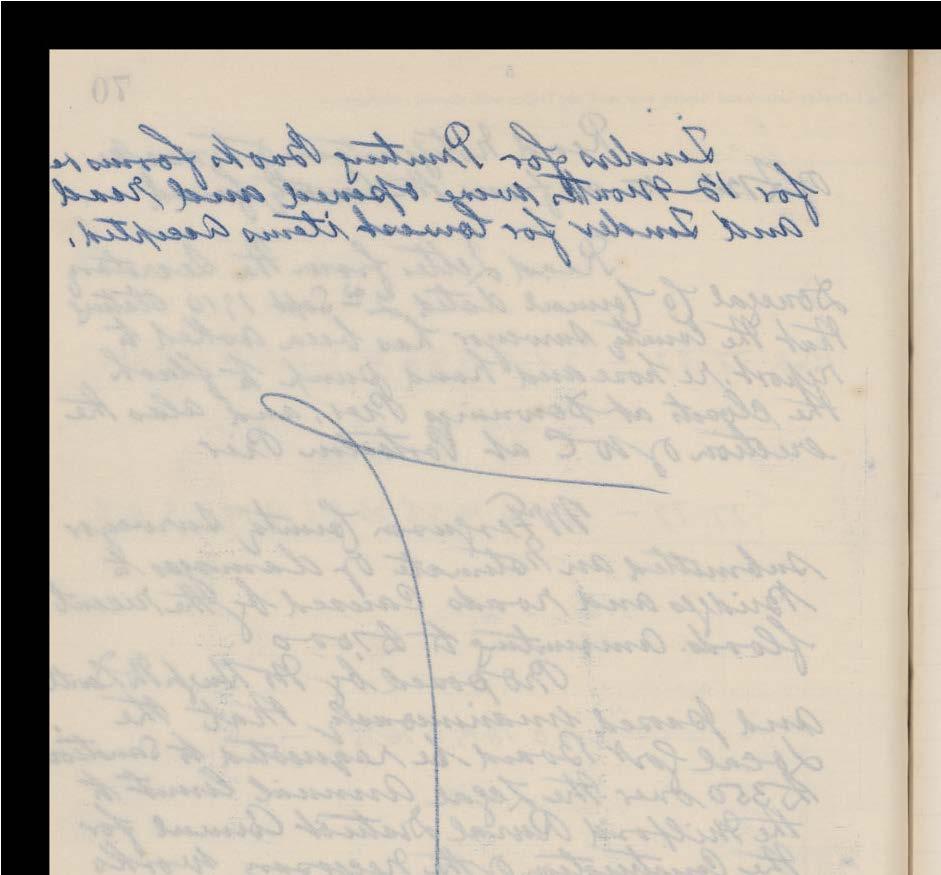 70
Tenders for Printing Books forms re
for 12 Months were opened and read
and Tender for lowest items accepted.
Read letter from the Secretary
Donegal Co Council dated Sept 1910 stating
that the County Surveyor has been asked to
report re hose and hand pump to flush
the closet at Downings Pier and also the
erection of W C at Portsalon Pier
County Surveyor
submitted an Estimate of damages to
Bridges and roads caused by the recent
floods amounting to
Proposed by Mr
and passed unanimously that the
Local Govt Board be requested to sanction
£350 over the legal annual limit to
the Milford Rural District Council for
the Construction of the necessary works